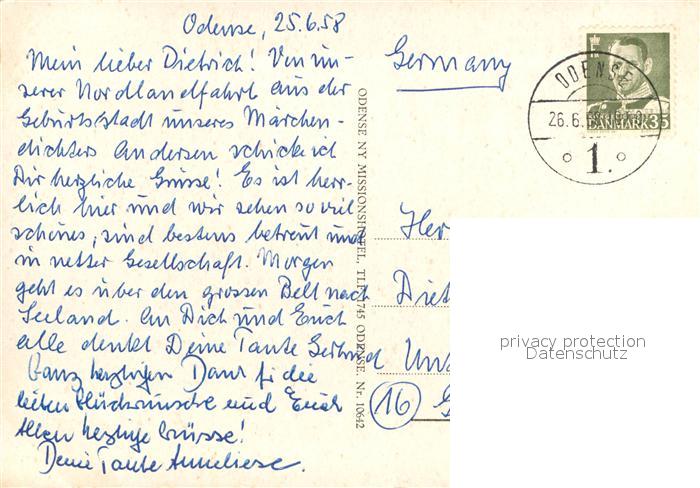 Odense, 25.6.58
Mein lieber Dietrich! Von un-
serer Nordlandfahrt aus der
Geburtsstadt unseres Märchen-
dichters Andersen schicke ich
Dir herzliche Grüsse! Es ist herr-
lich hier und wir sehen so viel
schönes, sind bestens betreut und
in netter Gesellschaft. Morgen
geht es über den grossen Belt nach
Seeland. An Dich und Euch
alle denkt Deine Tante Gertrud
Ganz herzlichen Dank für die
lieben Glückwünsche und Euch
Allen herzliche Grüsse!
Deine Tante Anneliese.
ODENSE NY MISSIONSHOTEL, TLF. 1745 ODENSE. Nr. 10642
Germany
ODENSE
26.6.
1.
DANMARK 35
Her
Diet
Und
16 G
privacy protection
Datenschutz